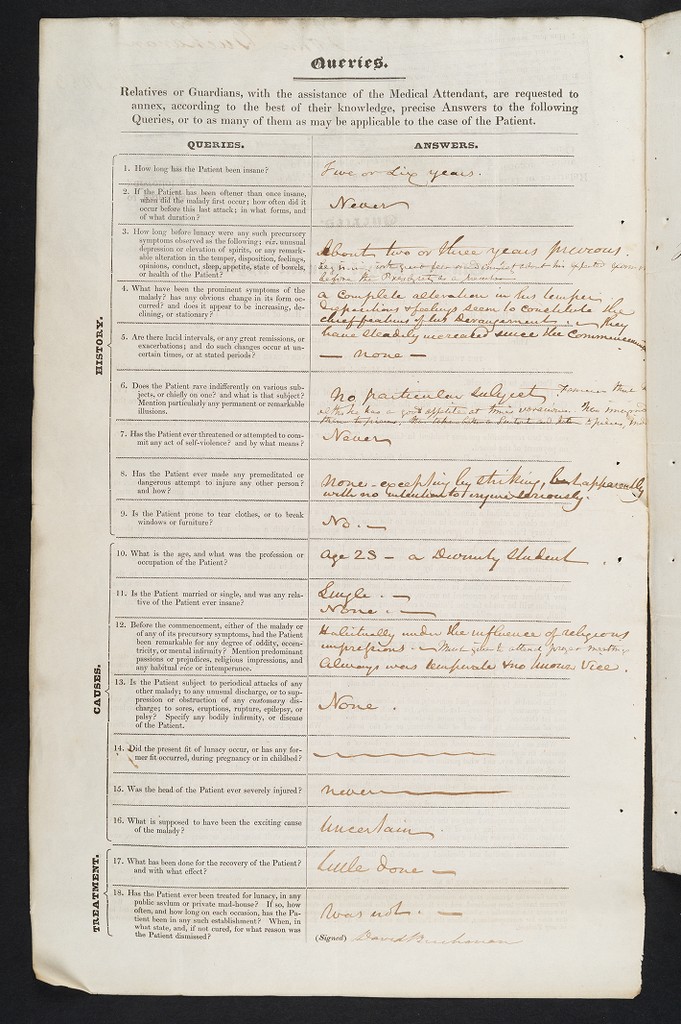 Queries.
Relatives or Guardians, with the assistance of the Medical Attendant, are requested to
annex, according to the best of their knowledge, precise Answers to the following
Queries, or to as many of them as may be applicable to the case of the Patient.
QUERIES.
ANSWERS.
HISTORY.
1. How long has the Patient been insane?
Five or Six years.
2. If the Patient has been oftener than once insane,
when did the malady first occur; how often did it
occur before this last attack; in what forms, and
of what duration?
Never
3. How long before lunacy were any such precursory
symptoms observed as the following; viz. unusual
depression or elevation of spirits, or any remark-
able alteration in the temper, disposition, feelings,
opinions, conduct, sleep, appetite, state of bowels,
or health of the Patient?
About two or three years previous.
before the Presbytery
4. What have been the prominent symptoms of the
malady? has any obvious change in its form oc-
curred? and does it appear to be increasing, de-
clining, or stationary?
a complete alteration in his temper
Dispositions & feelings seem to constitute the
chief features of his Derangement. — they
have steadily increased since the commencement
5. Are there lucid intervals, or any great remissions, or
exacerbations; and do such changes occur at un-
certain times, or at stated periods?
— none —
6. Does the Patient rave indifferently on various sub-
jects, or chiefly on one? and what is that subject?
Mention particularly any permanent or remarkable
illusions.
No particular subject.
he has a good appetite at times
7. Has the Patient ever threatened or attempted to com-
mit any act of self-violence? and by what means?
Never
8. Has the Patient ever made any premeditated or
dangerous attempt to injure any other person?
and how?
none – excepting by striking, but apparently
with no intention to injure seriously.
9. Is the Patient prone to tear clothes, or to break
windows or furniture?
No. —
CAUSES.
10. What is the age, and what was the profession or
occupation of the Patient?
age 28 – a Divinity Student
11. Is the Patient married or single, and was any rela-
tive of the Patient ever insane?
Single. —
None. —
12. Before the commencement, either of the malady or
of any of its precursory symptoms, had the Patient
been remarkable for any degree of oddity, eccen-
tricity, or mental infirmity? Mention predominant
passions or prejudices, religious impressions, and
any habitual vice or intemperance.
Habitually under the influence of religious
impressions. — Much given to attend prayer meetings
Always was temperate & no known Vice.
13. Is the Patient subject to periodical attacks of any
other malady; to any unusual discharge, or to sup-
pression or obstruction of any customary dis-
charge; to sores, eruptions, rupture, epilepsy, or
palsy? Specify any bodily infirmity, or disease
of the Patient.
None.
14. Did the present fit of lunacy occur, or has any for-
mer fit occurred, during pregnancy or in childbed?
15. Was the head of the Patient ever severely injured?
never
16. What is supposed to have been the exciting cause
of the malady?
Uncertain
TREATMENT.
17. What has been done for the recovery of the Patient?
and with what effect?
Little done —
18. Has the Patient ever been treated for lunacy, in any
public asylum or private mad-house? If so, how
often, and how long on each occasion, has the Pa-
tient been in any such establishment? When, in
what state, and, if not cured, for what reason was
the Patient dismissed?
Was not. —
(Signed) David Buchanan